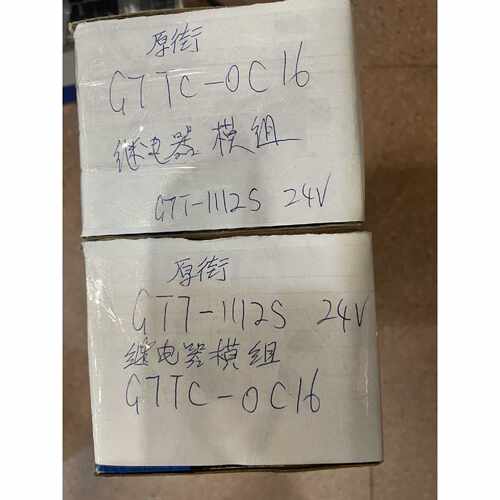 原街
G7TC-OC16
继电器 模组
G7T-1112S 24V
原街
GT7-1112S 24V
继电器模组
G7TC-OC16